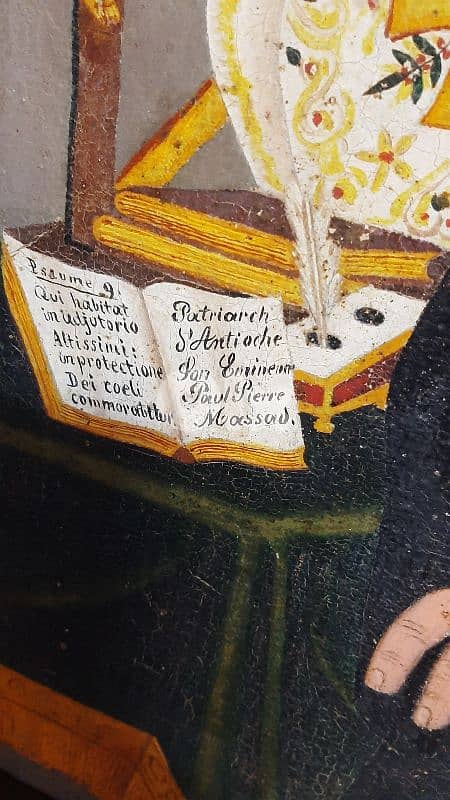 Psaume 9.
Qui habitat
in adjutorio
Altissimi:
in protectione
Dei coeli
commorabitur.
Patriarch
d'Antioche
Son Eminence
Paul Pierre
Massad.